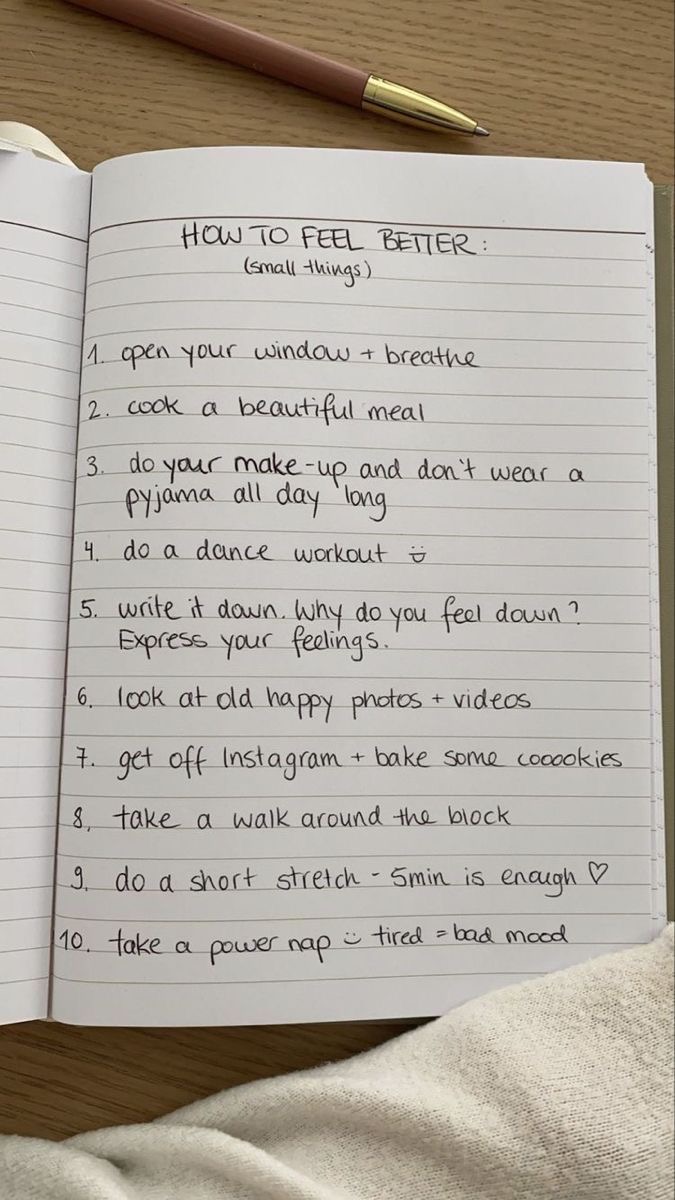 HOW TO FEEL BETTER:
(small things)
1. open your window + breathe
2. cook a beautiful meal
3. do your make-up and don't wear a
pyjama all day long
4. do a dance workout :)
5. write it down. Why do you feel down?
Express your feelings.
6. look at old happy photos + videos
7. get off Instagram + bake some cooookies
8. take a walk around the block
9. do a short stretch - 5min is enough ♡
10. take a power nap :) tired = bad mood